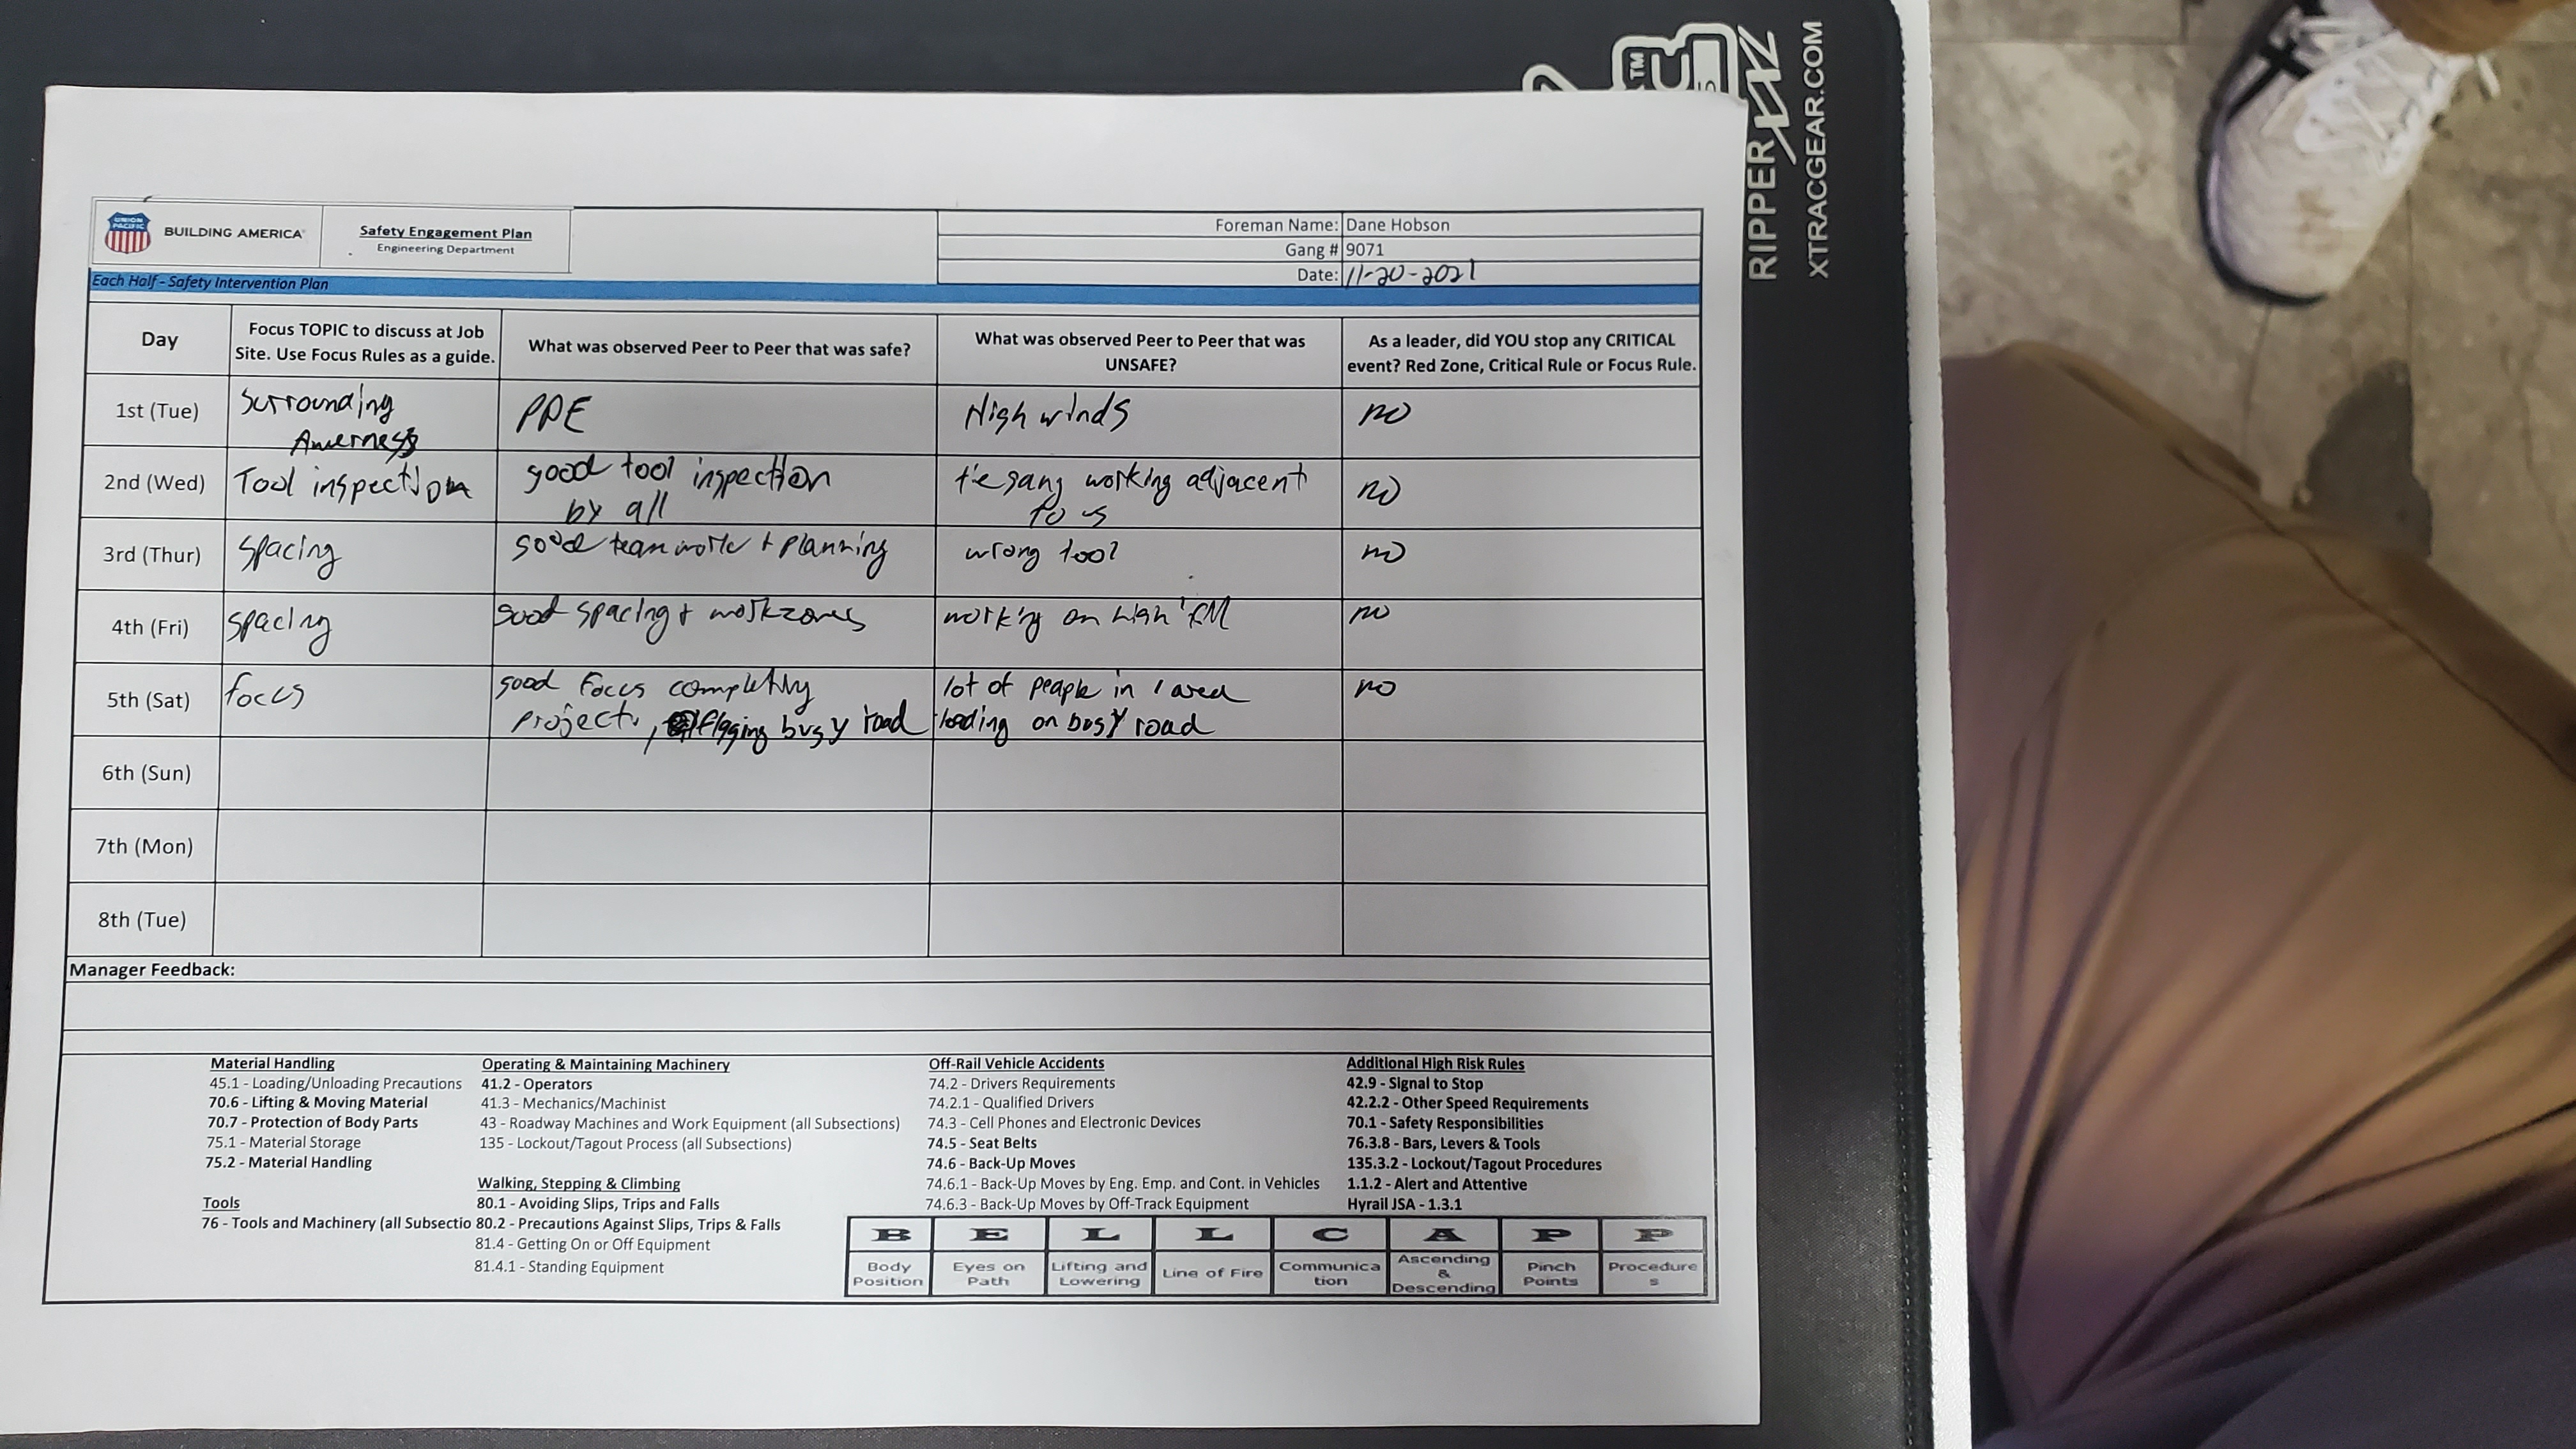 RIPPER XXL
XTRACGEAR.COM
UNION PACIFIC
BUILDING AMERICA
Safety Engagement Plan
Engineering Department
Foreman Name: Dane Hobson
Gang # 9071
Date: 11-20-2021
Each Half - Safety Intervention Plan
Day
Focus TOPIC to discuss at Job
Site. Use Focus Rules as a guide.
What was observed Peer to Peer that was safe?
What was observed Peer to Peer that was
UNSAFE?
As a leader, did YOU stop any CRITICAL
event? Red Zone, Critical Rule or Focus Rule.
1st (Tue)
Surrounding
Awerness
PPE
High winds
no
2nd (Wed)
Tool inspection
good tool inspection
by all
tie gang working adjacent
to us
no
3rd (Thur)
spacing
good teamwork + planning
wrong tool
no
4th (Fri)
spacing
good spacing + workzones
working on high
no
5th (Sat)
focus
good focus completly
project, flagging busy road
lot of people in 1 area
loading on busy road
no
6th (Sun)
7th (Mon)
8th (Tue)
Manager Feedback:
Material Handling
45.1 - Loading/Unloading Precautions
70.6 - Lifting & Moving Material
70.7 - Protection of Body Parts
75.1 - Material Storage
75.2 - Material Handling
Tools
76 - Tools and Machinery (all Subsectio
Operating & Maintaining Machinery
41.2 - Operators
41.3 - Mechanics/Machinist
43 - Roadway Machines and Work Equipment (all Subsections)
135 - Lockout/Tagout Process (all Subsections)
Walking, Stepping & Climbing
80.1 - Avoiding Slips, Trips and Falls
80.2 - Precautions Against Slips, Trips & Falls
81.4 - Getting On or Off Equipment
81.4.1 - Standing Equipment
Off-Rail Vehicle Accidents
74.2 - Drivers Requirements
74.2.1 - Qualified Drivers
74.3 - Cell Phones and Electronic Devices
74.5 - Seat Belts
74.6 - Back-Up Moves
74.6.1 - Back-Up Moves by Eng. Emp. and Cont. in Vehicles
74.6.3 - Back-Up Moves by Off-Track Equipment
Additional High Risk Rules
42.9 - Signal to Stop
42.2.2 - Other Speed Requirements
70.1 - Safety Responsibilities
76.3.8 - Bars, Levers & Tools
135.3.2 - Lockout/Tagout Procedures
1.1.2 - Alert and Attentive
Hyrail JSA - 1.3.1
B E L L C A P P
Body
Position
Eyes on
Path
Lifting and
Lowering
Line of Fire
Communica
tion
Ascending
&
Descending
Pinch
Points
Procedure
s